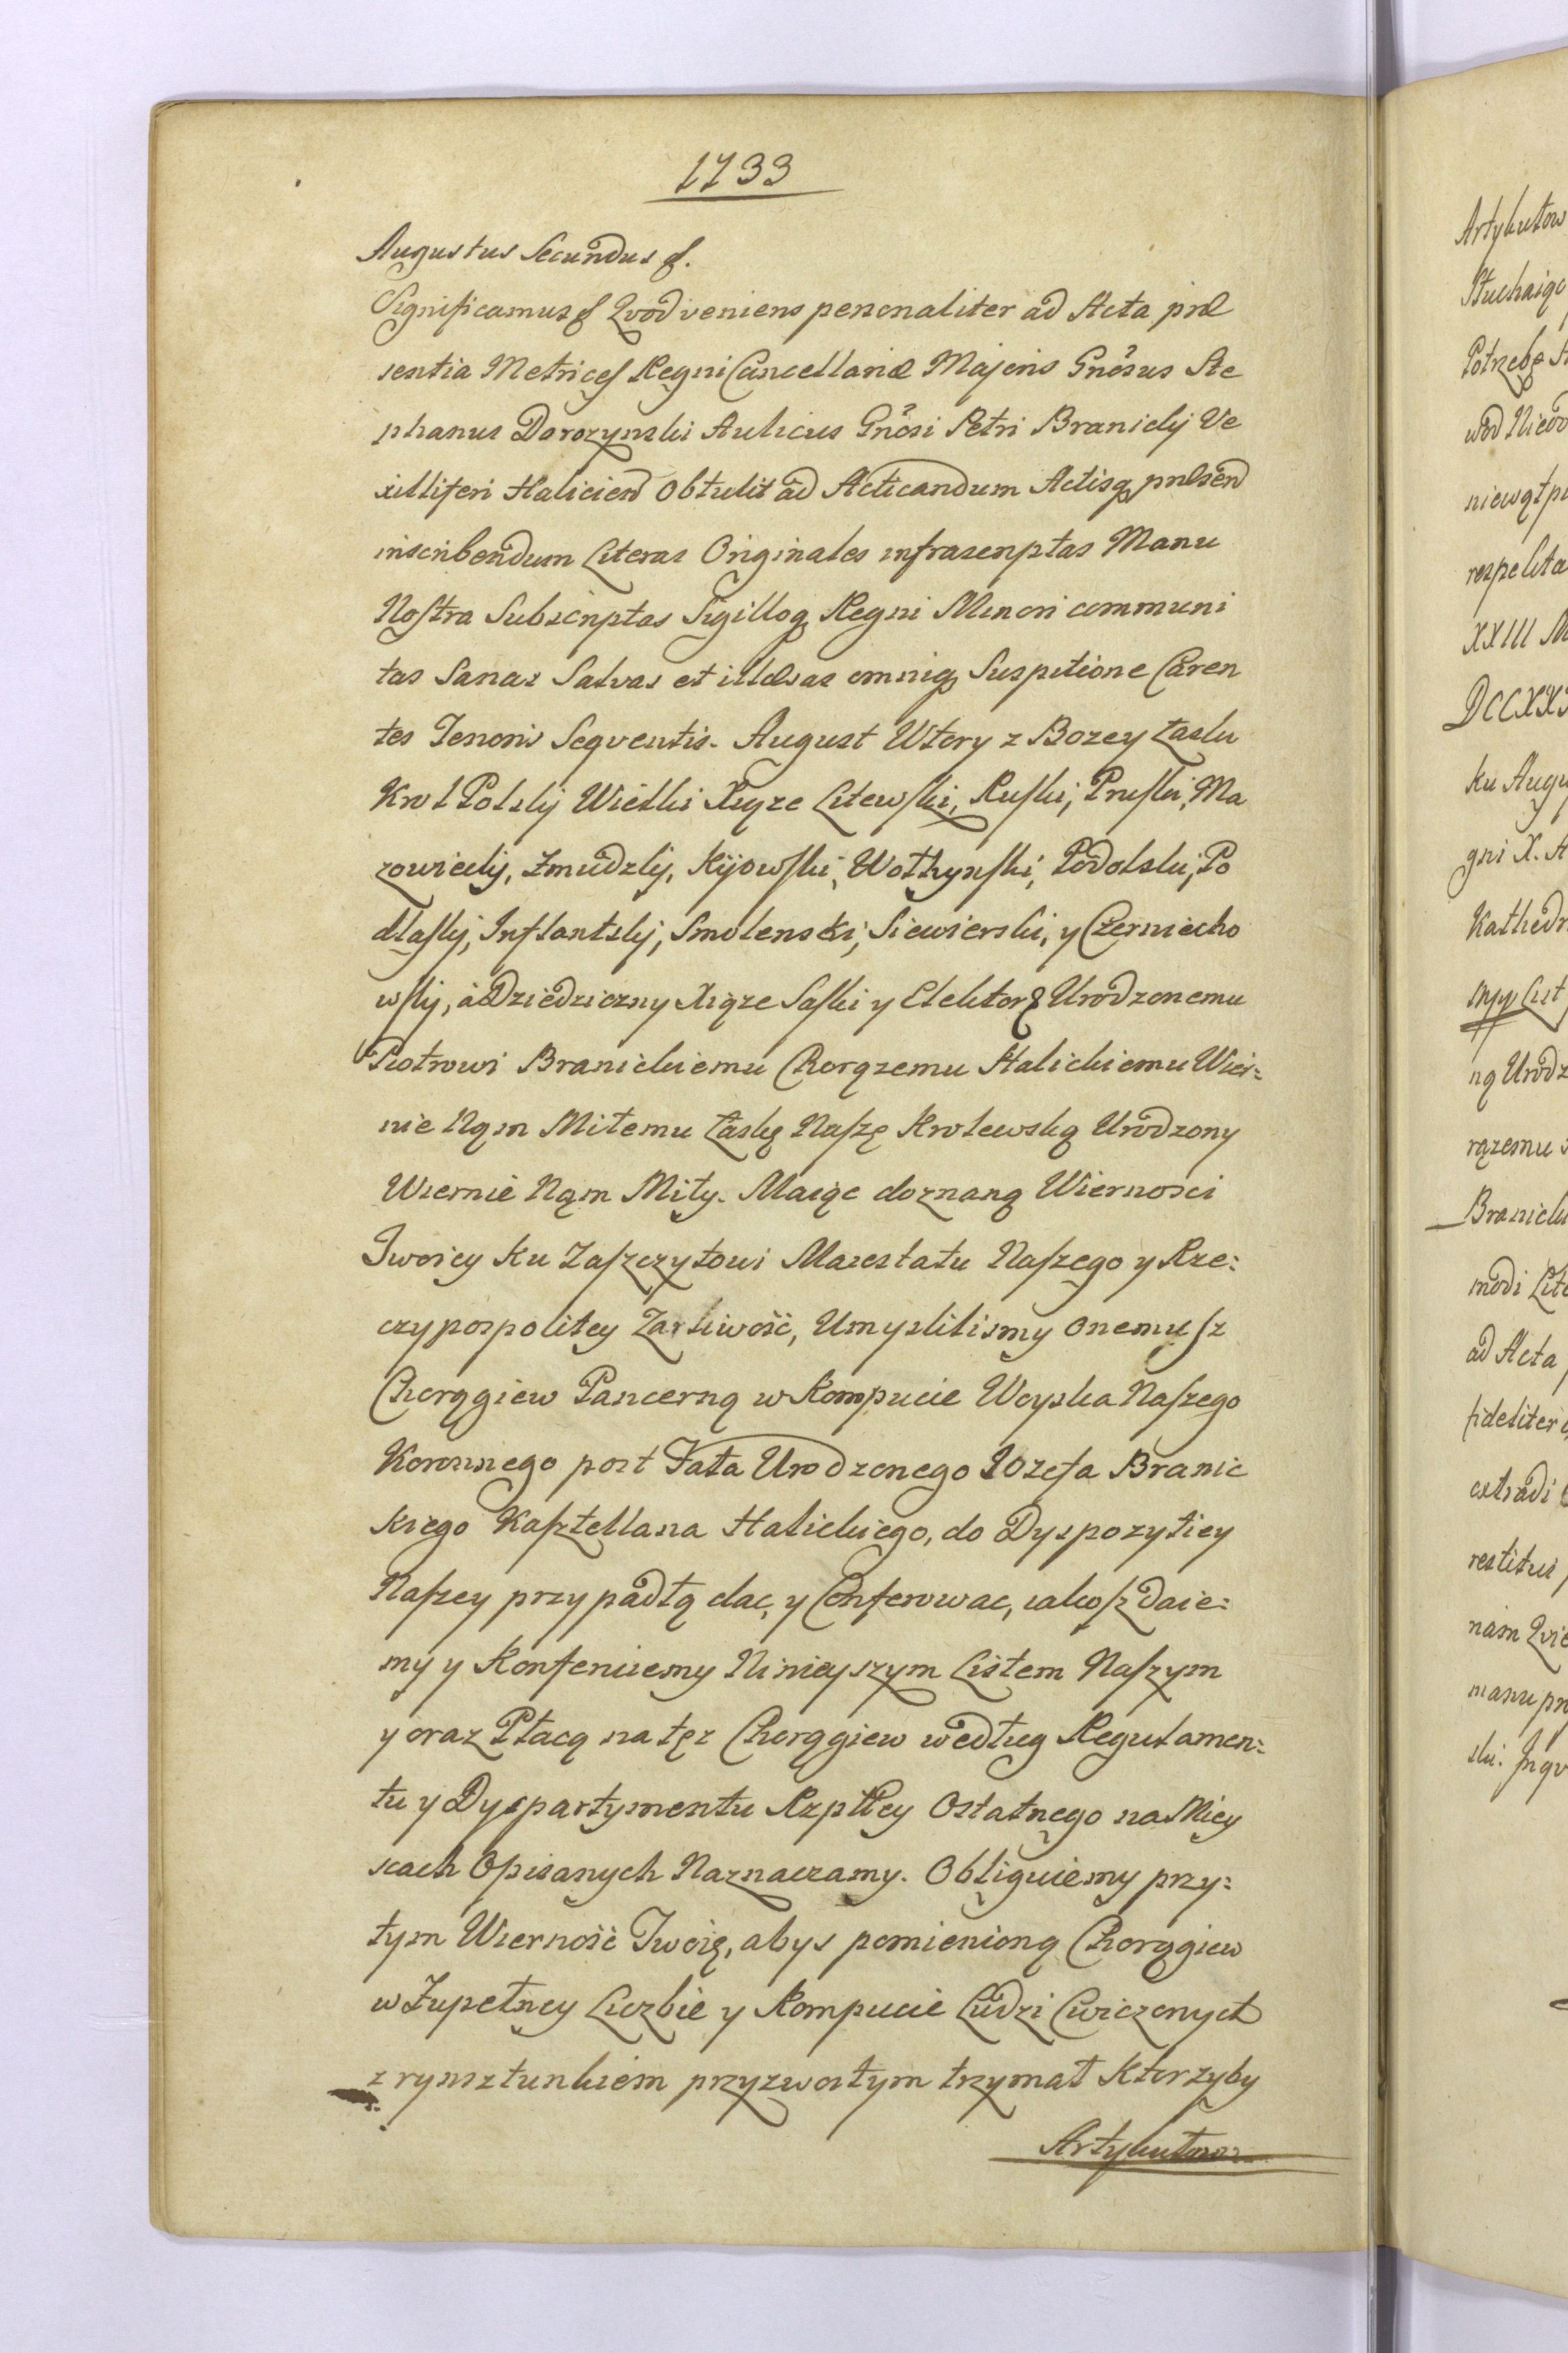 1733
Augustus Secundus &.
Significamus & Qvod veniens personaliter ad Acta præ
sentia Metrices Regni Cancellariæ Majoris Gnosus Ste
phanus Dorozynski Aulicus Gnosi Petri Branickij Ve
xilliferi Halicien Obtulit ad Acticandum Actisq præsen
inscribendum Literas Originales infrascriptas Manu
Nostra Subscriptas Sigilloq Regni Minori communi
tas Sanas Salvas et illæsas omniq Suspitione Caren
tes Tenoris Seqventis. August Wtory z Bozey Łaski
Krol Polskj Wielki Xiąze Litewski, Ruski, Pruski, Ma
zowieckj, Zmudzkj, Kijowski, Wołhynski, Podolski, Po
dlaskj, Inflantskj, Smolenski, Siewierski, y Czerniecho
wskj, a Dziedziczny Xiąze Saski y Elektor & Urodzonemu
Piotrowi Branickiemu Chorązemu Halickiemu Wier=
nie Nąm Miłemu Łaskę Naszę Krolewską Urodzony
Wiernie Nąm Miły. Maiąc doznaną Wiernosci
Twoiey ku Zaszczytowi Maiestatu Naszego y Rze=
czypospolitey Zarliwość, Umyslilismy onemusz
Chorągiew Pancerną w Kompucie Woyska Naszego
Koronnego post Fata Urodzonego Iozefa Branic
kiego Kasztellana Halickiego, do Dyspozytiey
Naszey przypadłą dac, y Conferowac, iakosz Daie=
my y Konferuiemy Ninieyszym Listem Naszym
y oraz Płacą na tęz Chorągiew według Regulamen=
tu y Dyspartymentu Rzpltey Ostatnego na Miey
scach Opisanych Naznaczamy. Obliguiemy przy=
tym Wierność Twoię, abys pomienioną Chorągiew
w Zupełney Liczbie y Kompucie Ludzi Cwiczonych
z rynsztunkiem przyzwoitym trzymał ktorzyby
Artykułow
Artykułow
Słuchaiąc
Potrzebę
wod Niedo
niewątpi
respekta
XXIII M
DCCXX
ku Aug
gni X. A
Kathed
List
ną Urodz
rązemu
Branick
modi Lite
ad Acta
fideliter
extradi
restitui
nam Qvie
manu
ski. Inqv